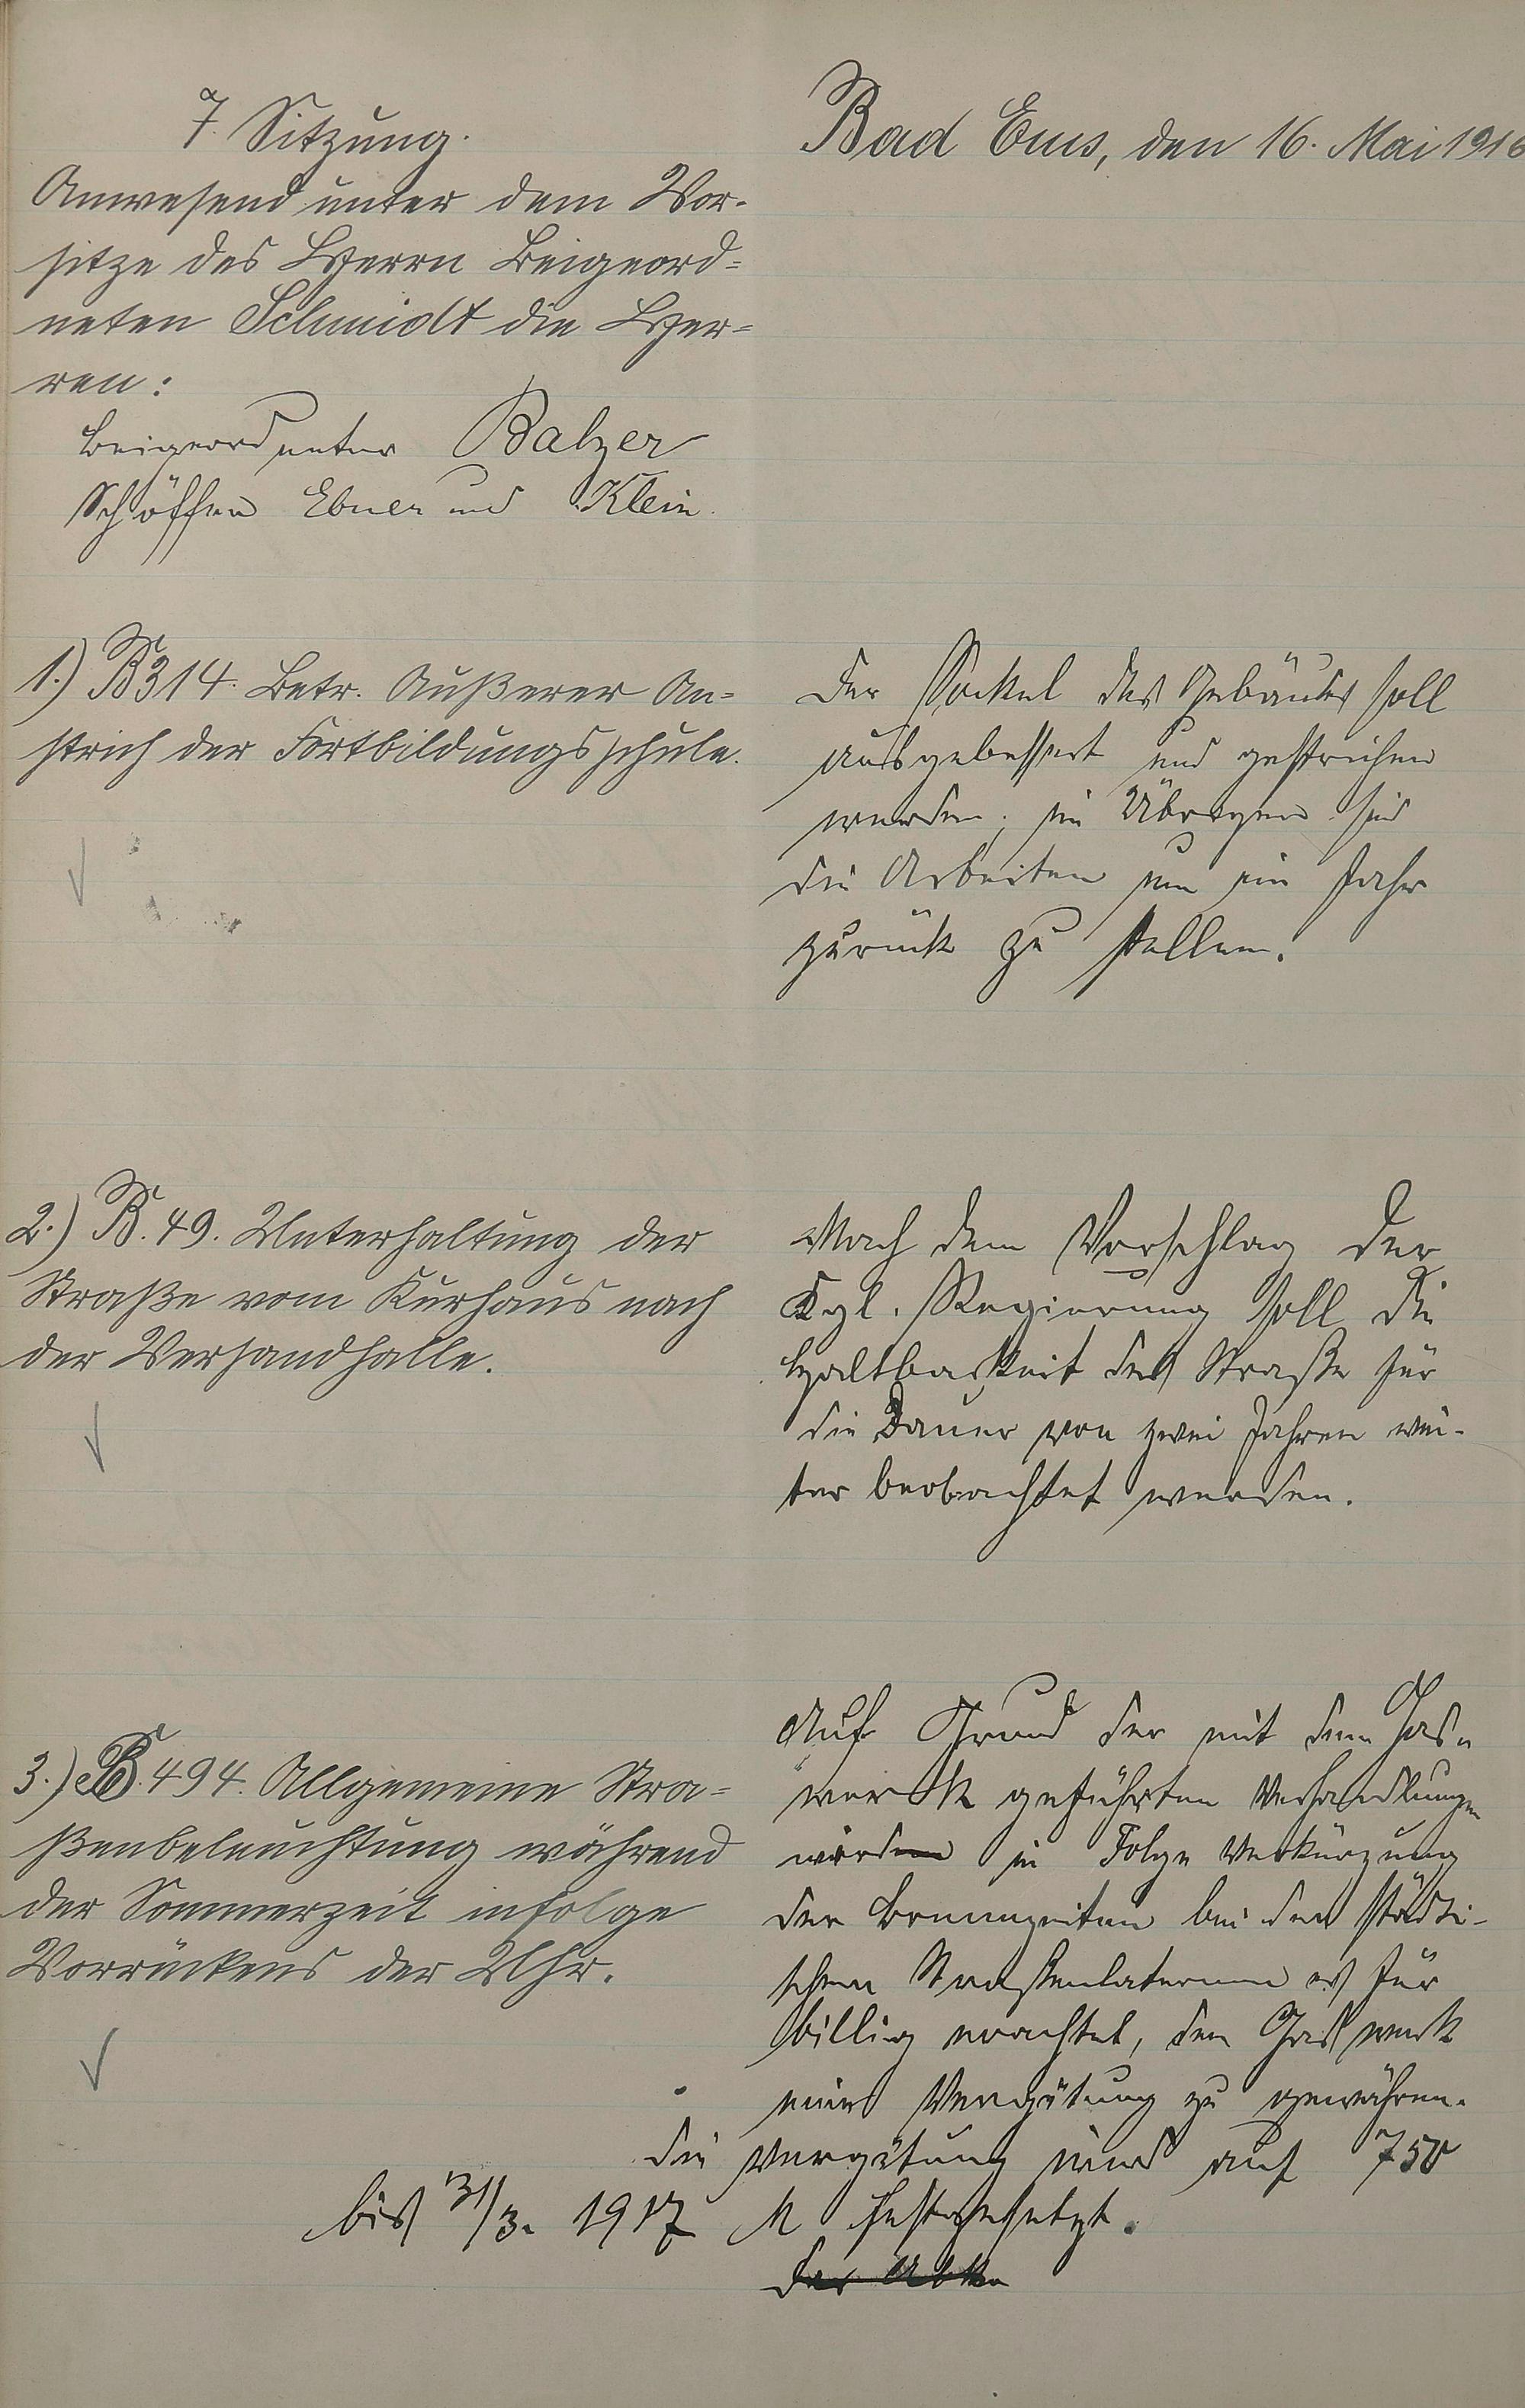 7. Sitzung.
Anwesend unter dem Vor-
sitze des Herrn Beigeord-
neten Schmidt die Her-
ren:
Beigeordneter Balzer
Schöffen Ebner und Klein.
Bad Ems, den 16. Mai 1916
1.) B 314. Betr. Äußerer An-
strich der Fortbildungsschule.
Der Sockel des Gebäudes soll
ausgebessert und gestrichen
werden; im Übrigen sind
die Arbeiten um ein Jahr
zurück zu stellen.
2.) B. 49. Unterhaltung der
Straße vom Kurhaus nach
der Versandhalle.
Nach dem Vorschlag der
Kgl. Regierung soll die
Haltbarkeit der Straße für
die Dauer von zwei Jahren wei-
ter beobachtet werden.
3.) B. 494. Allgemeine Stra-
ßenbeleuchtung während
der Sommerzeit infolge
Vorrückens der Uhr.
Auf Grund der mit dem Gas-
werk geführten Verhandlungen
wird in Folge Verkürzung
der Brennzeiten bei den städti-
schen Straßenlaternen es für
billig erachtet, dem Gaswerk
eine Vergütung zu gewähren.
Die Vergütung wird auf 750
bis 31/3. 1917 M festgesetzt.
Der